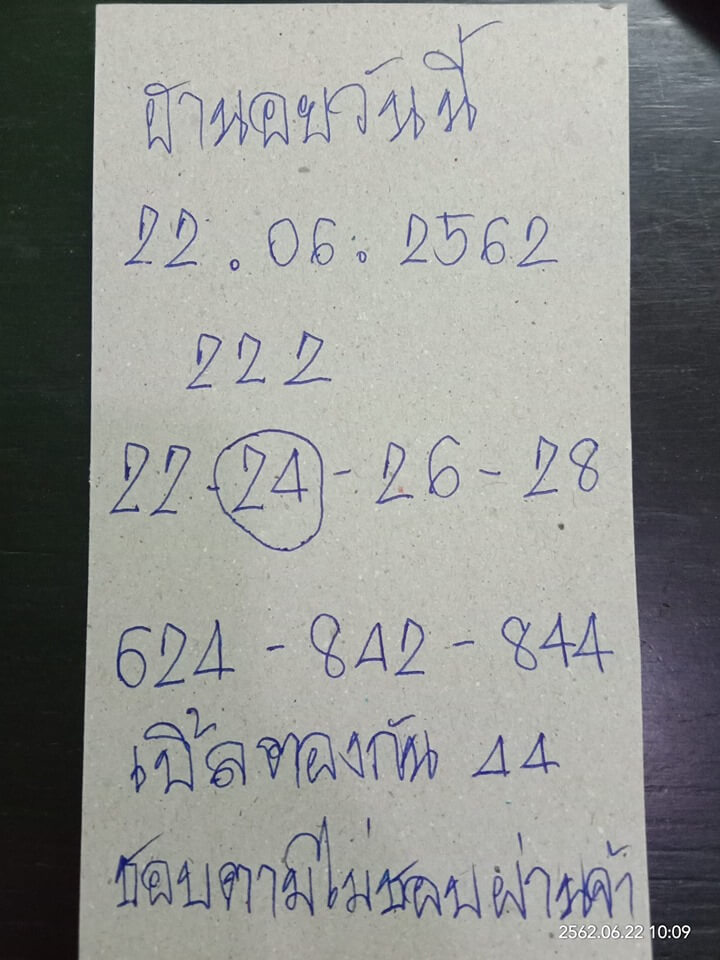 ฮานอยวันนี้
22.06.2562
222
22-24-26-28
624-842-844
เบิ้ลทองกัน 44
ชอบตามไม่ชอบผ่านจ้า
2562.06.22 10:09